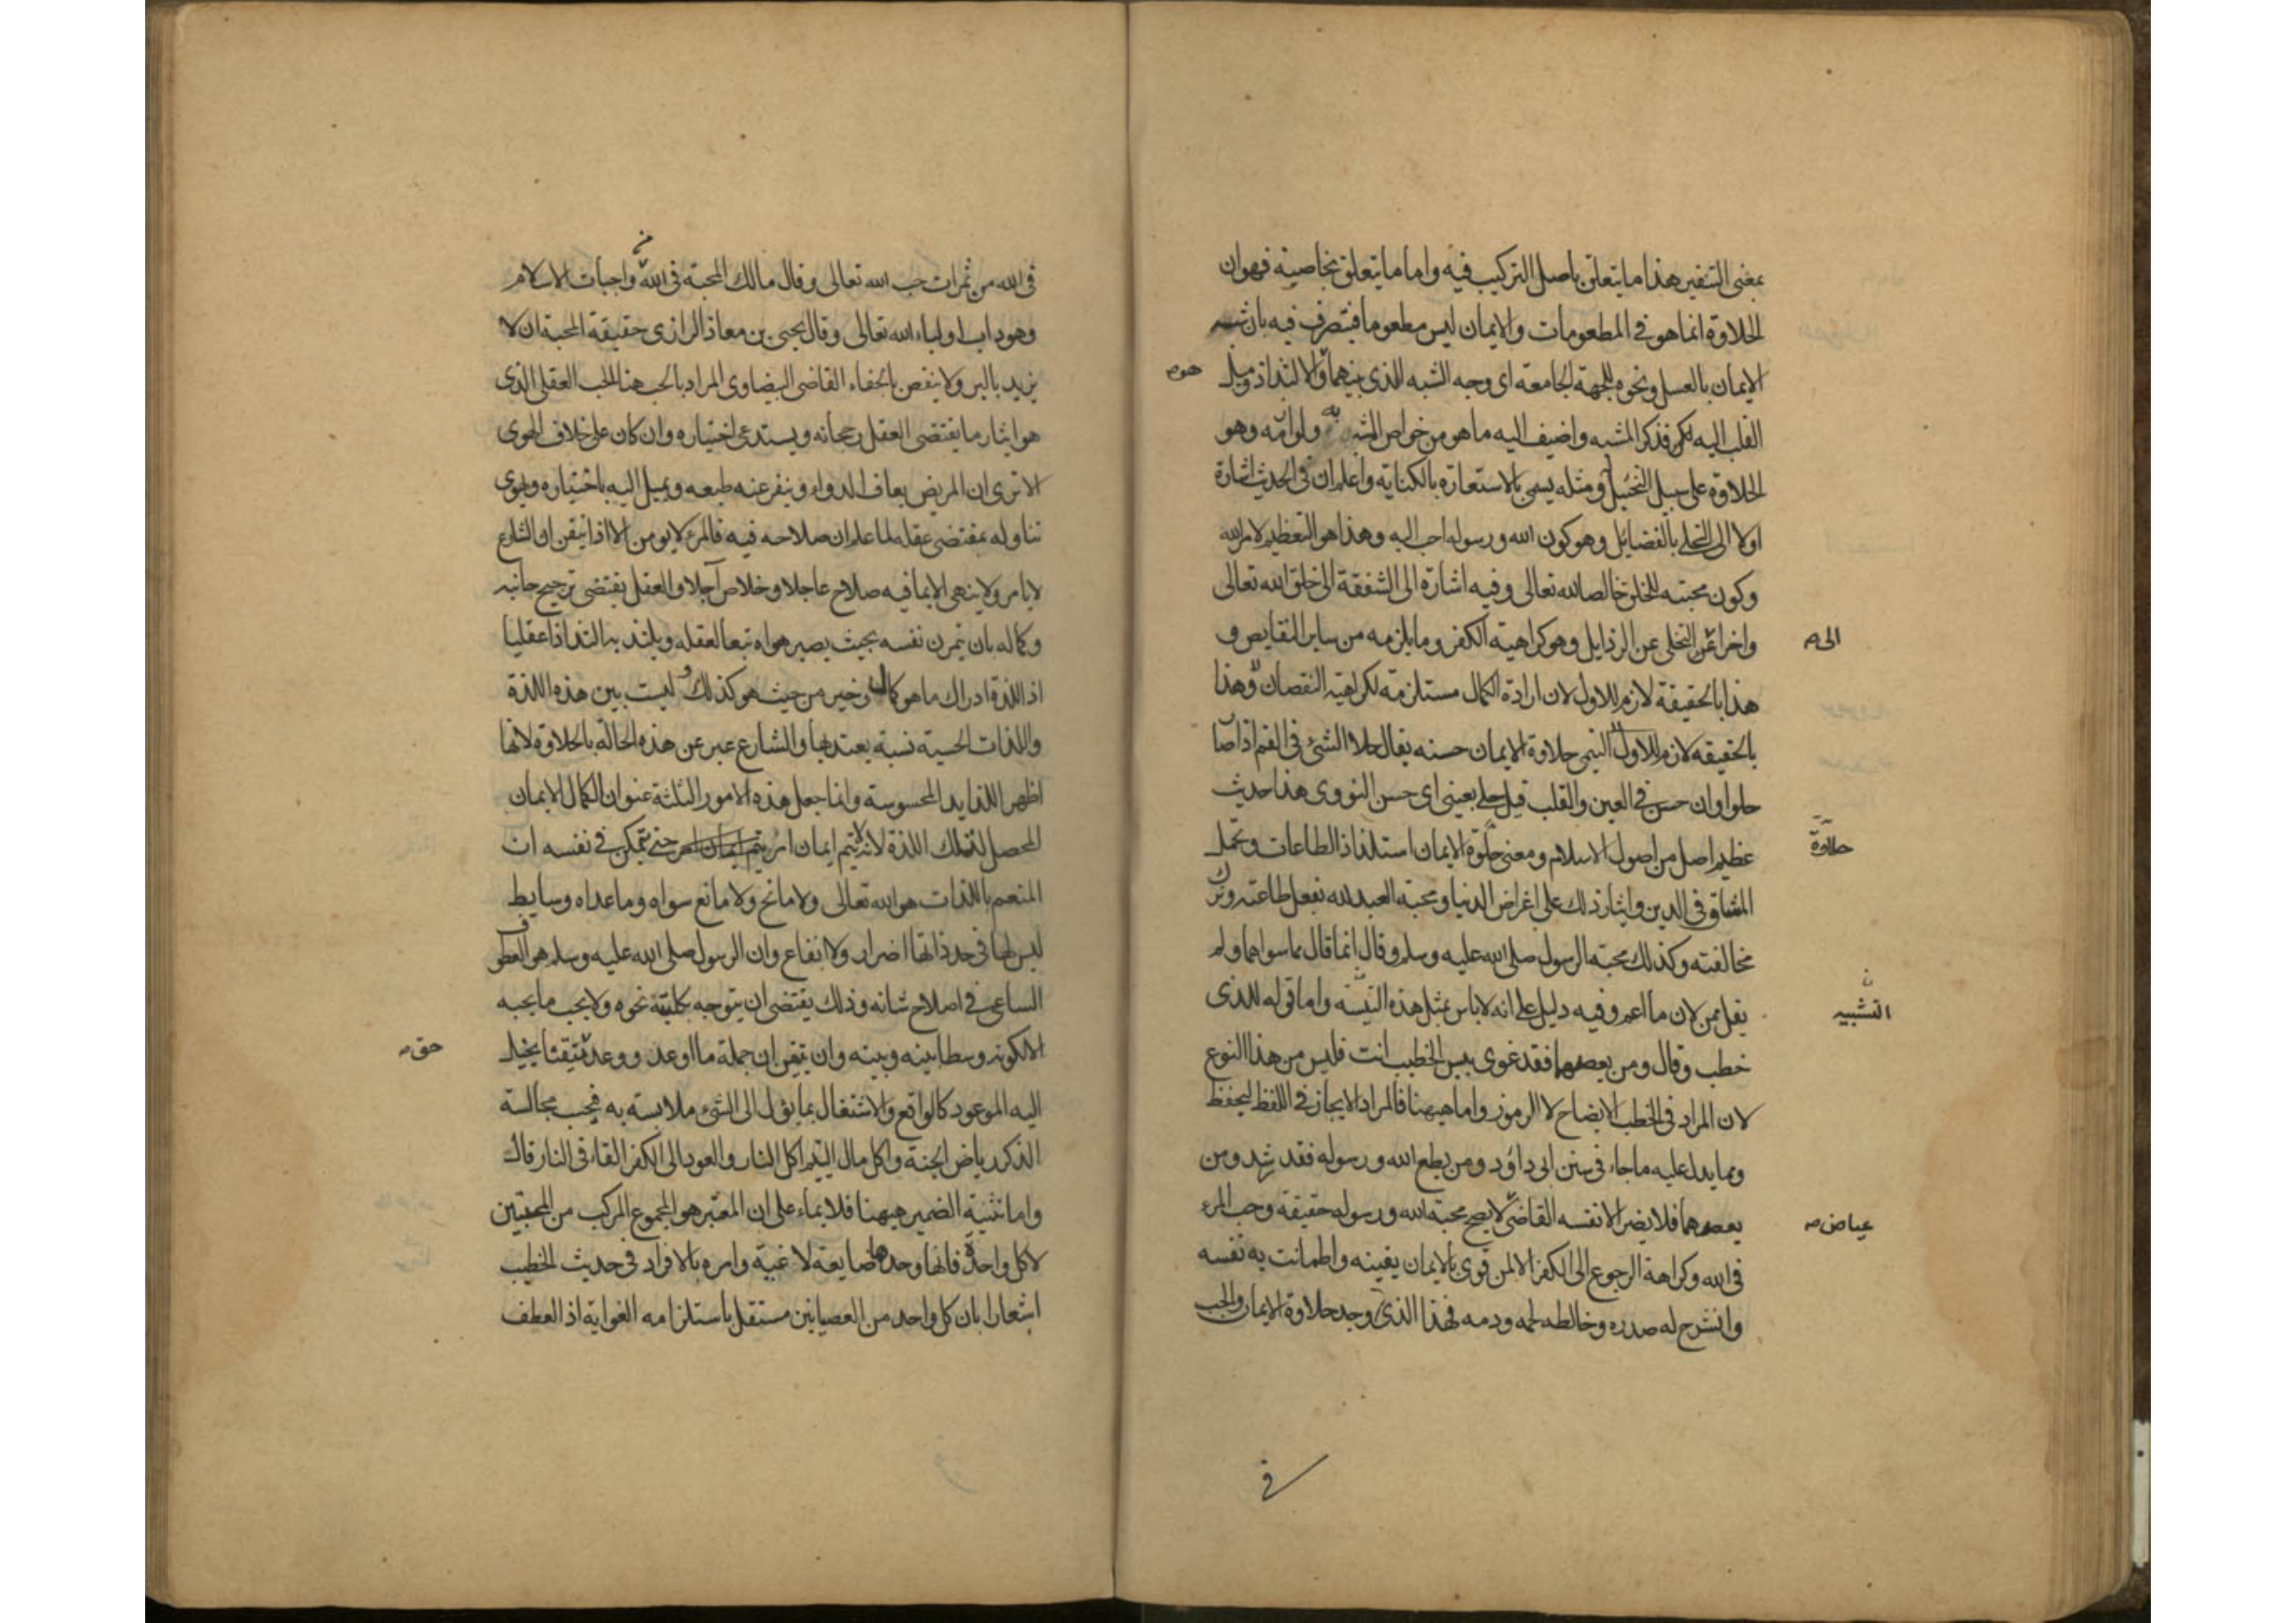 بمعنى التنفير هذا ما يتعلق باصل التركيب فيه واما ما يتعلق بخاصيته فهو ان
الحلاوة انما هو في المطعومات والايمان ليس مطعوما فيتصرف فيه بان شبه
الايمان بالعسل ونحوه للجهة الجامعة اى وجه الشبه الذى بينهما والالتذاذ وميل
هو صح
القلب اليه فذكر المشبه واضيف اليه ما هو من خواص المشبه به ولوازمه وهو
الحلاوة على سبيل التخييل ومثله يسمى بالاستعارة بالكناية واعلم ان فى الحديث اشارة
اولا الى التحلى بالفضايل وهو كون الله ورسوله احب اليه وهذا هو التعظيم لامر الله
وكون محبته للخلق خالصا لله تعالى وفيه اشارة الى الشفقة الى خلق الله تعالى
واخرا عن التخلى عن الرذايل وهو كراهية الكفر وما يلزمه من ساير النقايص و
الى صح
هذا بالحقيقة لازم للاول لان ارادة الكمال مستلزمة لكراهية النقصان وهذا
بالحقيقه لازم للاول التيمى حلاوة الايمان حسنه يقال حلا الشئ فى الفم اذا صا
حلوا وان حسن في العين والقلب قيل حلى بعينى اى حسن النووى هذا حديث
عظيم اصل من اصول الاسلام ومعنى حلوة الايمان استلذاذ الطاعات وتحمل
حلاوة
المشاق فى الدين وايثار ذلك على اغراض الدنيا ومحبة العبد لله بفعل طاعته وترك
مخالفته وكذلك محبة الرسول صلى الله عليه وسلم وقال انما قال مما سواهما ولم
يقل ممن لان ما اعم وفيه دليل على انه لا باس بمثل هذه التثنية واما قوله للذى
التشبيه
خطب وقال ومن يعصهما فقد غوى بيس الخطيب انت فليس من هذا النوع
لان المراد فى الخطب الايضاح لا الرموز واما هيهنا فالمراد الايجاز فى اللفظ ليحفظ
ومما يدل عليه ما جاء فى سنن ابى داؤد ومن يطع الله ورسوله فقد رشد ومن
يعصهما فلا يضر الا نفسه القاضى لا يصح محبة الله ورسوله حقيقة وحب المرء
عياض صح
فى الله وكراهة الرجوع الى الكفر الا لمن قوى بالايمان يقينه واطمانت به نفسه
وانشرح له صدره وخالطه لحمه ودمه فهذا الذى وجد حلاوة الايمان والحب
فى
فى الله من ثمرات حب الله تعالى وقال مالك المحبة فى الله من واجبات الاسلام
وهو داب اولياء الله تعالى وقال يحيى بن معاذ الرازى حقيقة المحبة ان لا
يزيد بالبر ولا ينقص بالجفاء القاضى البيضاوى المراد بالحب هنا الحب العقلى الذى
هو ايثار ما يقتضى العقل رجحانه ويستدعى اختياره وان كان على خلاف الهوى
الا ترى ان المريض يعاف الدواء وينفر عنه طبعه ويميل اليه باختياره ويهوى
تناوله بمقتضى عقله لما علم ان صلاحه فيه فالمرء لا يومن الا اذا تيقن ان الشارع
لا يامر ولا ينهى الا بما فيه صلاح عاجلا وخلاص آجلا والعقل يقتضى ترجيح جانبه
وكماله بان تمرن نفسه بحيث يصير هواه تبعا لعقله ويلتذ به التذاذا عقليا
اذ اللذة ادراك ما هو كمال وخير من حيث هو كذلك وليست بين هذه اللذة
واللذات الحسية نسبة يعتد بها والشارع عبر عن هذه الحالة بالحلاوة لانها
اظهر اللذايذ المحسوسة وانما جعل هذه الامور الثلثة عنوان الكمال الايمان
المحصل لتلك اللذة لانه لا يتم ايمان امرء حتى يتمكن فى نفسه ان
المنعم باللذات هو الله تعالى ولا مانح ولا مانع سواه وما عداه وسايط
ليس لها فى حد ذاتها اضرار ولا انفاع وان الرسول صلى الله عليه وسلم هو العطوف
الساعى فى اصلاح شانه وذلك يقتضى ان يتوجه بكليته نحوه ولا يحب ما يحبه
الا لكونه وسطا بينه وبينه وان تيقن ان جملة ما اوعد ووعد تيقنا يخيل
حق صح
اليه الموعود كالواقع والاشتغال بما يؤل الى الشئ ملابسة به فيحب مجالسة
الذكر رياض الجنة واكل مال اليتيم اكل النار والعود الى الكفر القاء فى النار قال
واما تثنية الضمير هيهنا فلايماء على ان المعتبر هو المجموع المركب من المحبتين
لا كل واحدة فانها وحدها ضايعة لاغية وامره بالافراد فى حديث الخطيب
اشعارا بان كل واحد من العصيانين مستقل باستلزامه الغواية اذ العطف